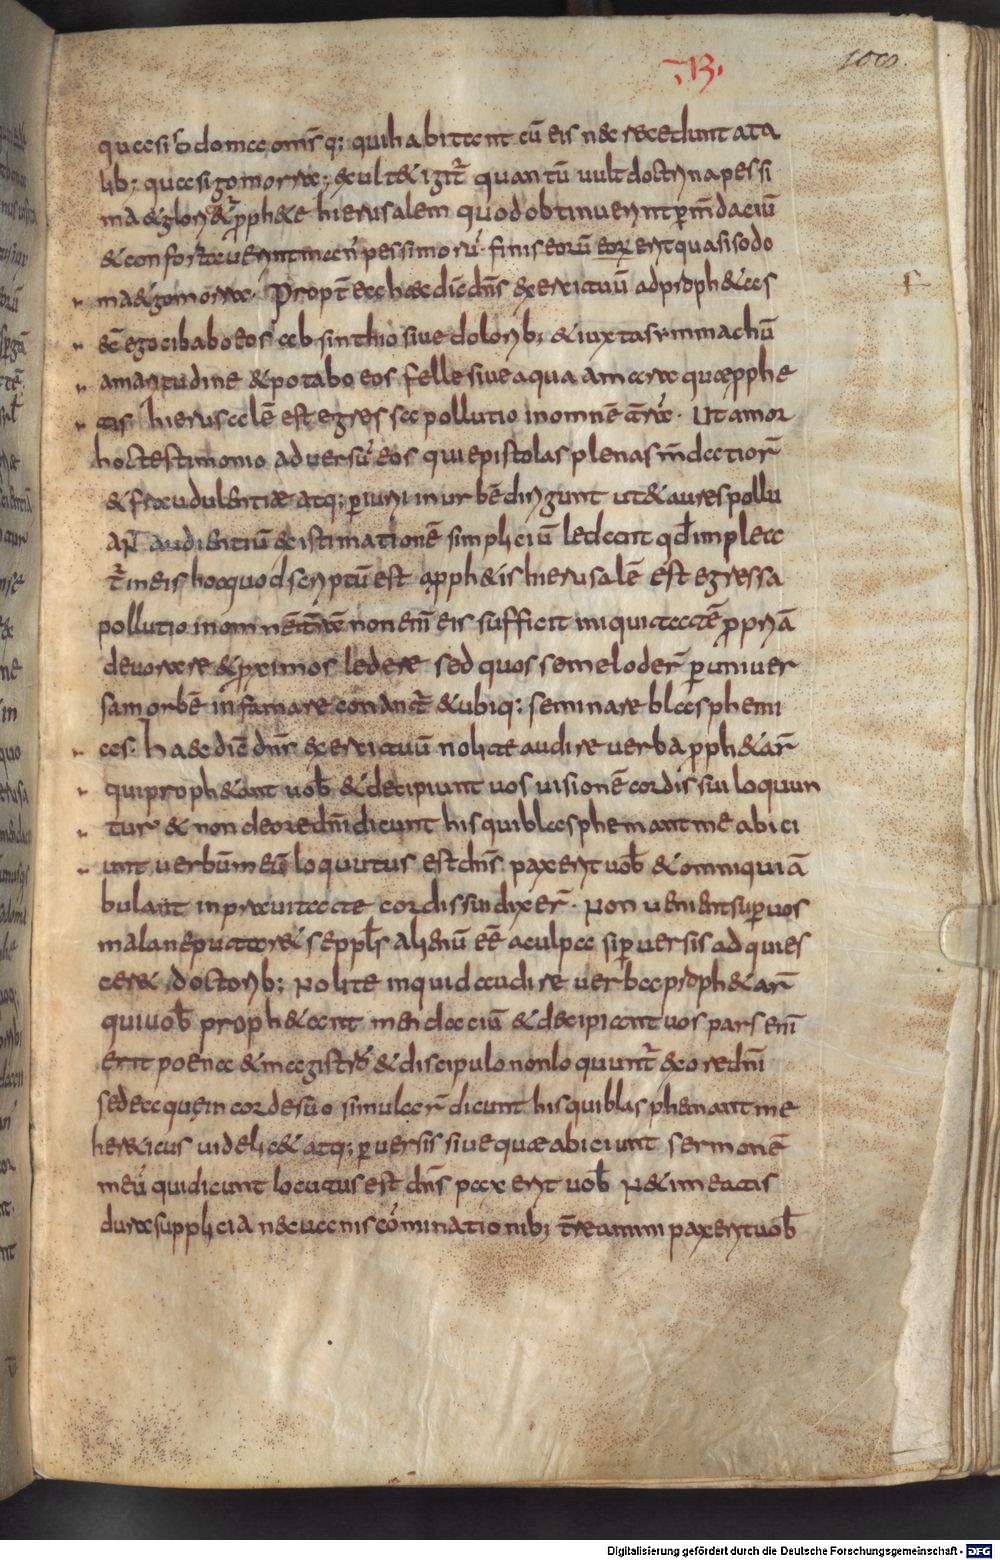 B
100
quasi sodoma omnisq; qui habitant cū eis nec recedunt a ta
lib; quasi gomorra; exultet igit̄ quantū vult doctrina pessi
ma & gloriet̄ pph&e hierusalem quod obtinuerint p m̄daciū
& confortaverint manꝰ pessimorū. finis eorū eorū erit quasi sodo
ma & gomorra. Propt̄ea haec dic̄ dn̄s exercituū ad proph&as
ecc̄ ego cibabo eos absinthio sive dolorib; & iuxta symmachū
amaritudine & potabo eos felle sive aqua amara quæ a pphe
tis hierusalē est egressa pollutio in omnē t̄rā. Utamur
hoc testimonio adversū eos qui epistolas plenas m̄datiorū
& fraudulentiæ atq; piurii in urbē dirigunt ut & aures pollu
ant audientiū & estimationē simpliciū ledant qd̄ implea
t̄ in eis hoc quod scriptū est a pph&is hierusalē est egressa
pollutio in omnē t̄rā non enī eis sufficit iniquitatē ppriā
devorare & pximos ledere sed quos semel oder̄ p univer
sam orbē infamare conant̄ & ubiq; seminare blasphemi
as. Haec dic̄ dn̄s exercituū nolite audire verba pph&ar̄
qui proph&ant vob̄ & decipiunt vos visionē cordis sui loquun
tur & non de ore dn̄i dicunt his qui blasphemant me abici
unt verbū meū locutus est dn̄s pax erit vob̄ & omni qui ā
bulant in pravitate cordis sui dixer̄. Non venient sup vos
mala ne putaret̄ sepplīs alienū eē a culpa si pversis adquies
ceret doctorib; Nolite inquid audire verba proph&ar̄
qui vob̄ proph&ant mendaciū & decipiant vos pars enī
erit poenæ & magistro & discipulo non loquunt̄ ex ore dn̄i
sed ea quę in corde suo simular̄ dicunt his qui blasphemant me
hereticus videlicet atq; pversis sive quæ abiciunt sermonē
meū qui dicunt locutus est dn̄s pax erit vob̄ Ne timeatis
dura supplicia nec vanis cōminationib; t̄reamini pax erit vob̄
Digitalisierung gefördert durch die Deutsche Forschungsgemeinschaft - DFG